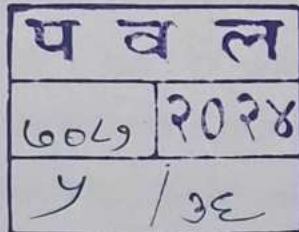 प व ल
७०८७ २०२४
५ / ३६